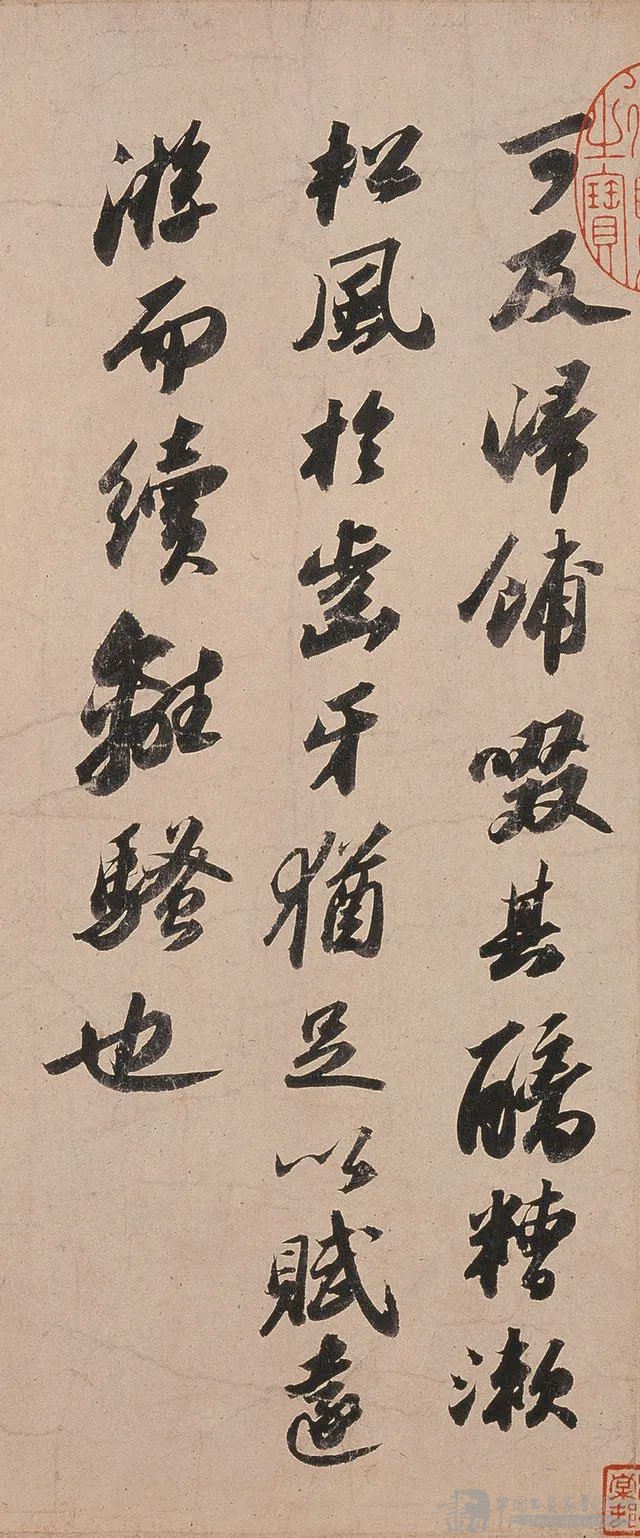 可及歸餔啜其醨糟漱
松風於齒牙猶足以賦遠
游而續離騷也
之寶